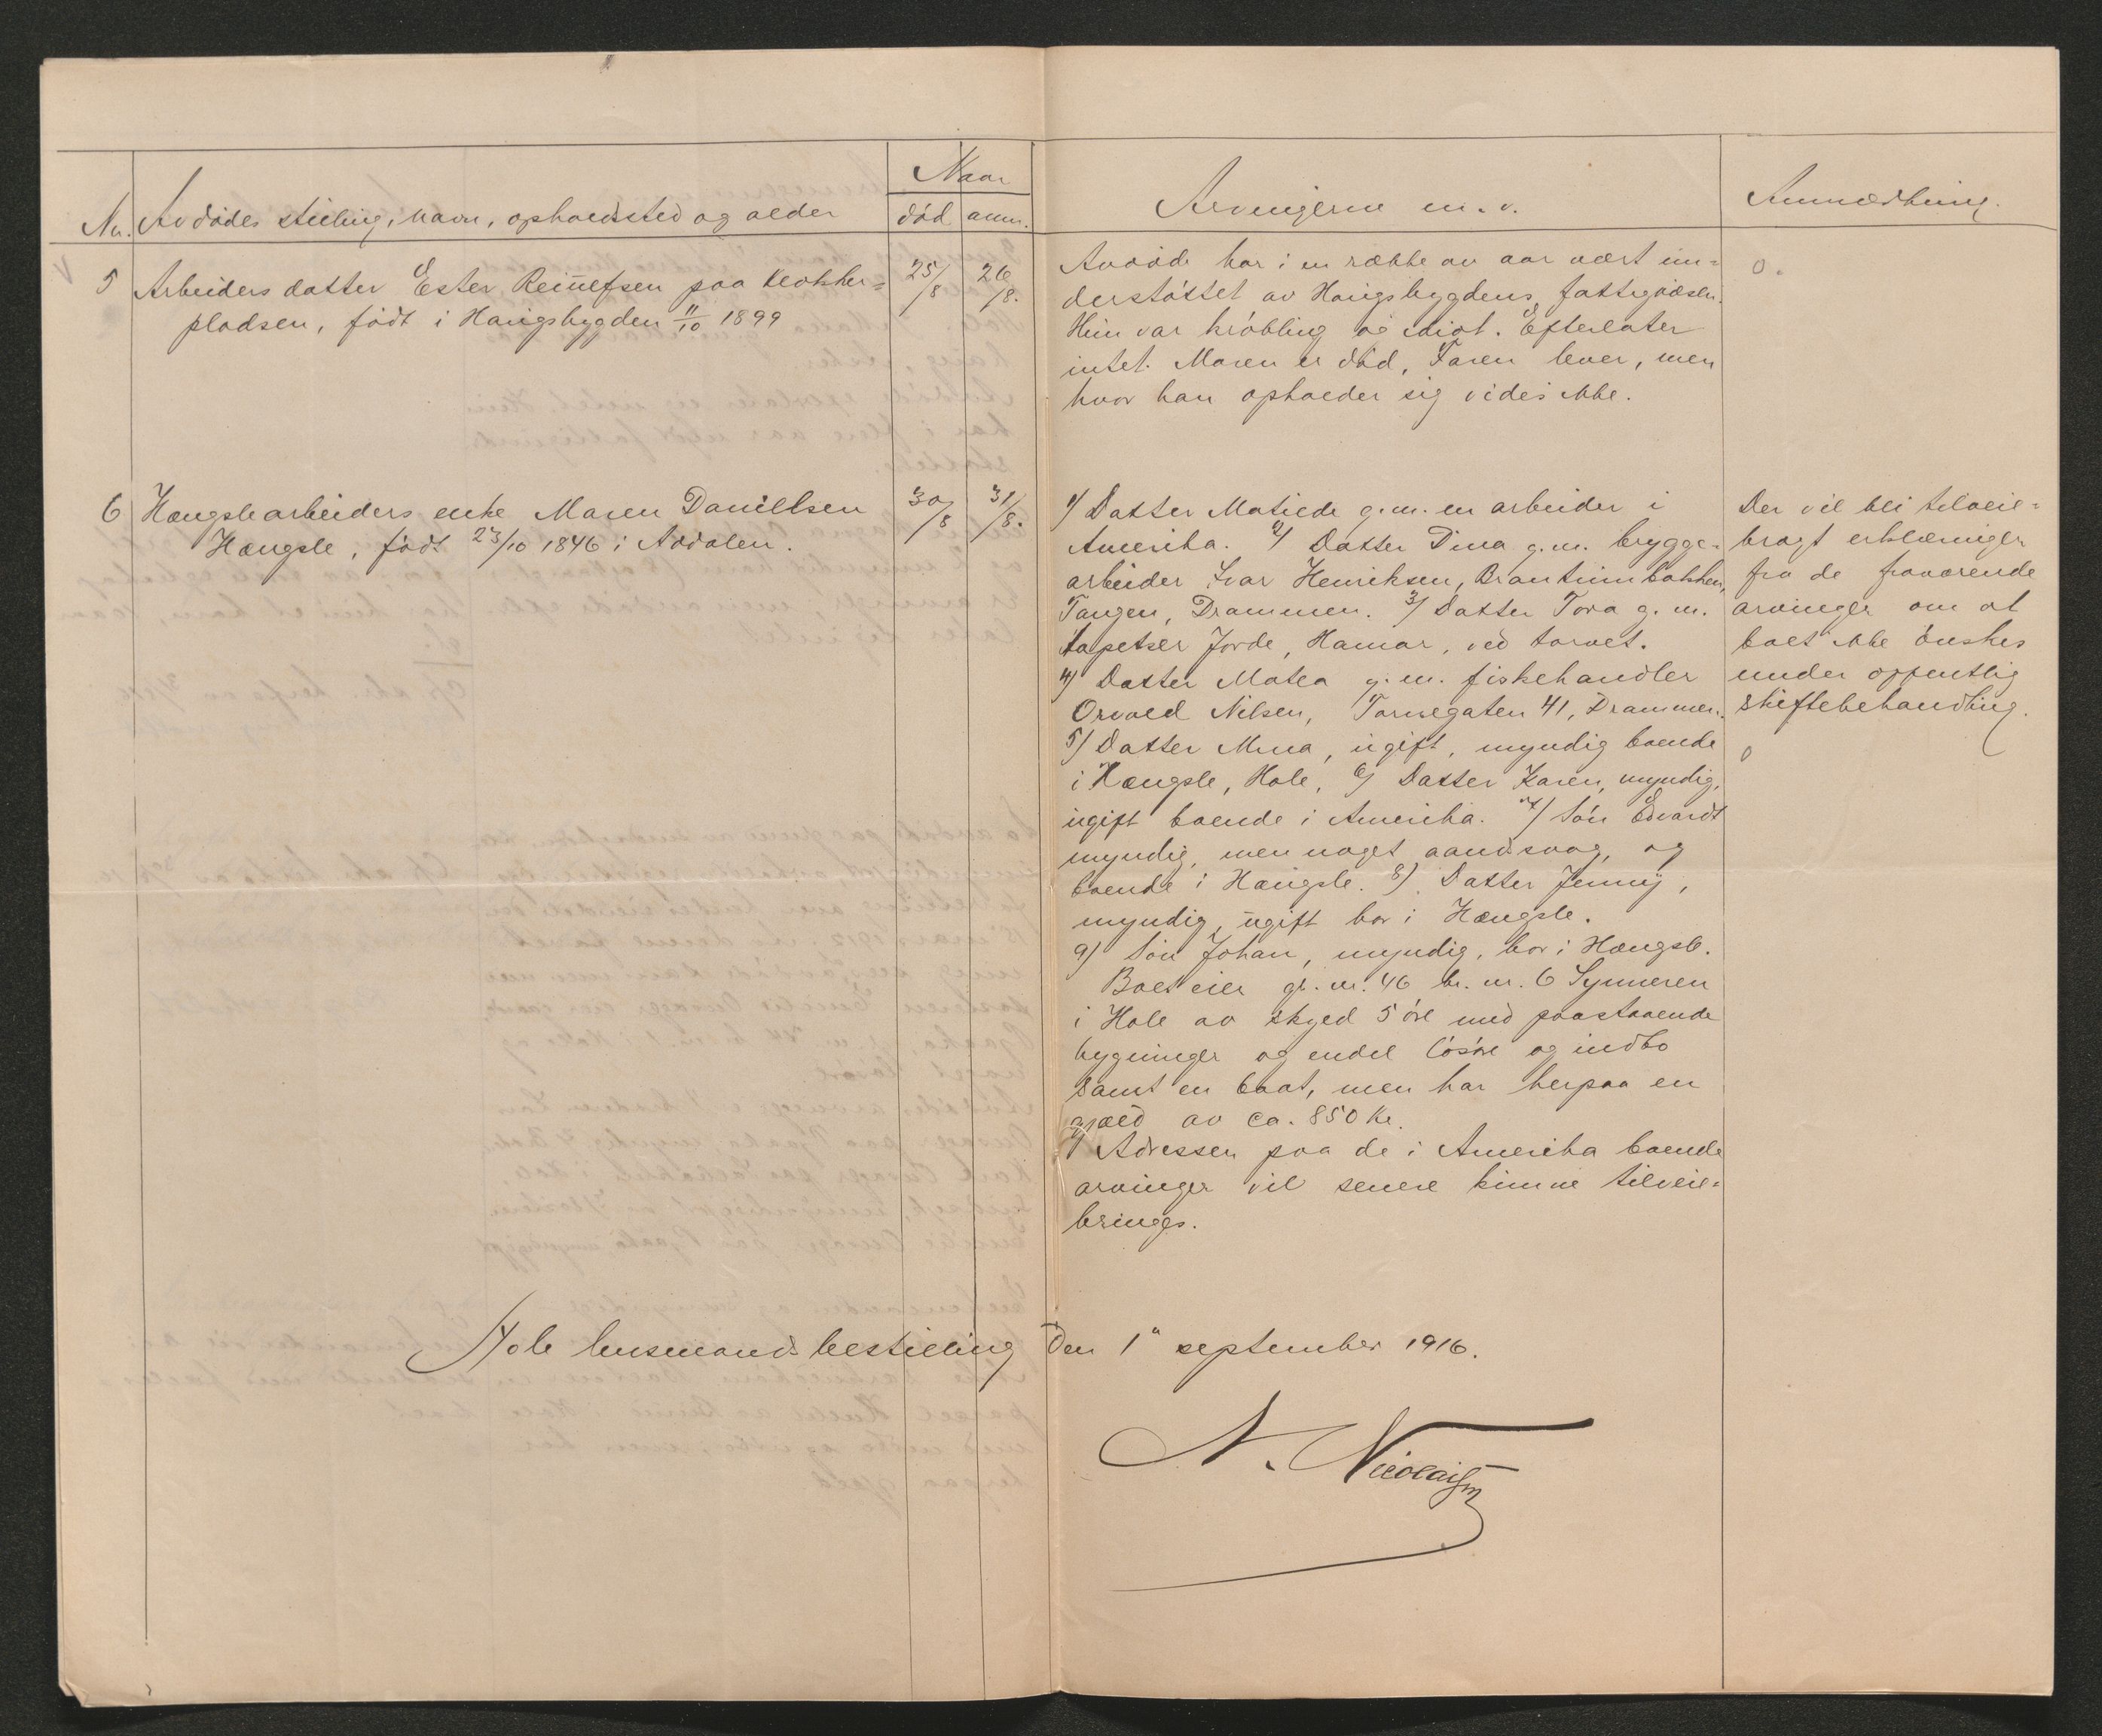 Naar
Nr. Avdødes stilling, navn, opholdssted og alder død anm. Arvingerne m. v. Anmerkning.
5 Arbeiders datter Ester Reinelfsen paa Klokker=
pladsen, født i Haugsbygden 11/10 1899
25/8 26/8.
Avdøde har i en række av aar vært un=
derstøttet av Haugsbygdens fattigvæsen.
Hun var krøbling og idiot. Efterlater
intet. Moren er død, Faren lever, men
hvor han opholder sig vides ikke.
0.
6 Hængslearbeiders enke Maren Daniélsen
Hængsle, født 23/10 1846 i Aadalen.
30/8 31/8.
1/ Datter Matilde g. m. en arbeider i
Amerika. 2/ Datter Dina g. m. brygge-
arbeider Ivar Henriksen, Brantrumbakken,
Tangen, Drammen. 3/ Datter Tora g. m.
tapetser Jorde, Hamar, ved torvet.
4/ Datter Matea g. m. fiskehandler
Orvald Nilsen, Tornegaten 41, Drammen.
5/ Datter Mina, ugift, myndig boende
i Hængsle, Hole, 6/ Datter Karen, myndig,
ugift boende i Amerika. 7/ Søn Edvardt
myndig, men noget aandssvag, og
boende i Hængsle. 8/ Datter Jenny,
myndig, ugift bor i Hængsle.
9/ Søn Johan, myndig, bor i Hængsle.
Boet eier gr. nr. 46 br. nr. 6 Synneren
i Hole av skyld 5 øre med paastaaende
bygninger og endel løsøre og indbo
samt en baat, men har herpaa en
gjæld av ca. 850 kr.
Adressen paa de i Amerika boende
arvinger vil senere kunne tilveie=
bringes.
Der vil bli tilveie=
bragt erklæringer
fra de fraværende
arvinger om at
boet ikke ønskes
under offentlig
skiftebehandling.
0
Hole lensmandsbestilling den 1ste september 1916.
N. Nicolaisen